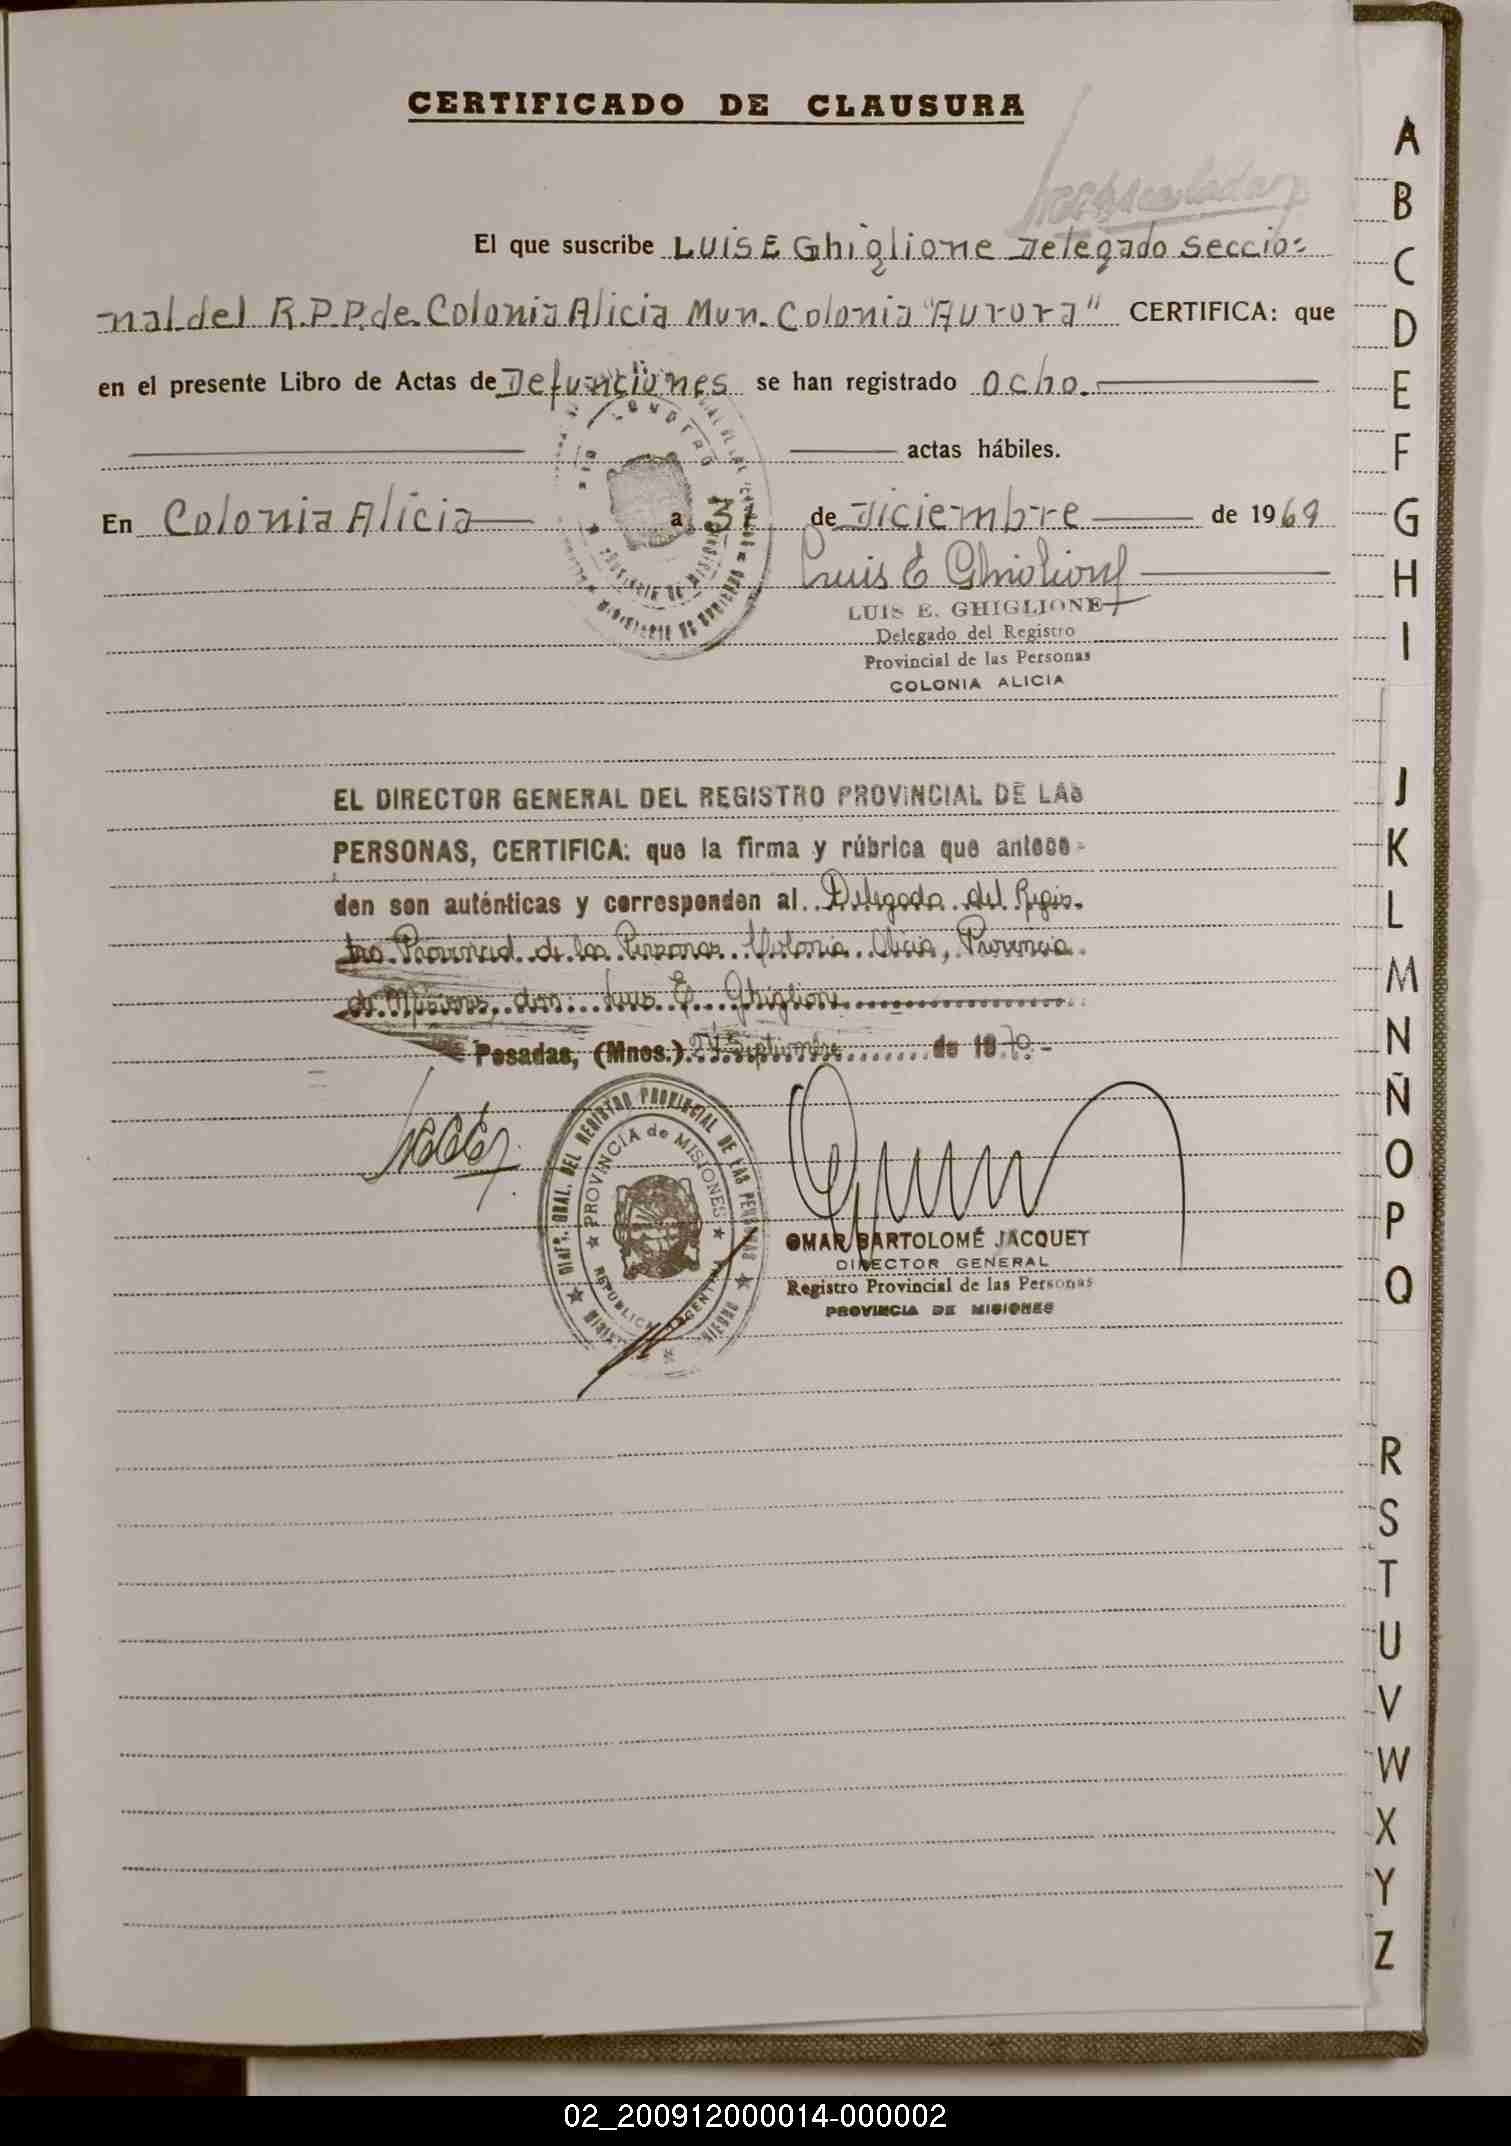 CERTIFICADO DE CLAUSURA
El que suscribe LUiS E Ghiglione Delegado Seccio=
nal del R.P.P. de Colonia Alicia Mun. Colonia "Aurora" CERTIFICA: que
en el presente Libro de Actas de Defunciones se han registrado Ocho.
actas hábiles.
En Colonia Alicia a 31 de Diciembre de 1969
Luis E Ghiglione
LUIS E. GHIGLIONE
Delegado del Registro
Provincial de las Personas
COLONIA ALICIA
EL DIRECTOR GENERAL DEL REGISTRO PROVINCIAL DE LAS
PERSONAS, CERTIFICA: que la firma y rúbrica que antece-
den son auténticas y corresponden al Delegado del Regis-
tro Provincial de las Personas Colonia Alicia, Provincia
de Misiones, don Luis E. Ghiglione
Posadas, (Mnes.) Septiembre de 1970.-
DIR. GRAL. DEL REGISTRO PROVINCIAL DE LAS PERSONAS
PROVINCIA de MISIONES
REPUBLICA ARGENTINA
OMAR BARTOLOMÉ JACQUET
DIRECTOR GENERAL
Registro Provincial de las Personas
PROVINCIA DE MISIONES
A
B
C
D
E
F
G
H
I
J
K
L
M
N
Ñ
O
P
Q
R
S
T
U
V
W
X
Y
Z
02_200912000014-000002